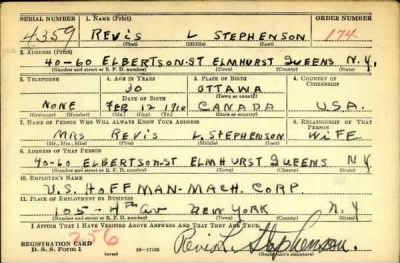 SERIAL NUMBER 1. NAME (Print) ORDER NUMBER
4359 REVIS L STEPHENSON 174
(First) (Middle) (Last)
2. ADDRESS (Print)
40-60 ELBERTSON-ST ELMHURST QUEENS N.Y.
(Number and street or R. F. D. number) (Town) (County) (State)
3. TELEPHONE 4. AGE IN YEARS 5. PLACE OF BIRTH 6. COUNTRY OF CITIZENSHIP
30 OTTAWA
DATE OF BIRTH
NONE FEB 12 1910 CANADA U.S.A.
(Exchange) (Number) (Mo.) (Day) (Yr.) (State or country)
7. NAME OF PERSON WHO WILL ALWAYS KNOW YOUR ADDRESS 8. RELATIONSHIP OF THAT PERSON
MRS REVIS L. STEPHENSON WIFE
(Mr., Mrs., Miss) (First) (Middle) (Last)
9. ADDRESS OF THAT PERSON
40-60 ELBERTSON-ST ELMHURST QUEENS NY
(Number and street or R. F. D. number) (Town) (County) (State)
10. EMPLOYER'S NAME
U.S. HOFFMAN-MACH. CORP
11. PLACE OF EMPLOYMENT OR BUSINESS
105-4TH AV NEW YORK N.Y
(Number and street or R. F. D. number) (Town) (County) (State)
I AFFIRM THAT I HAVE VERIFIED ABOVE ANSWERS AND THAT THEY ARE TRUE.
256
REGISTRATION CARD
D. S. S. Form 1 16-17105 Revis L. Stephenson.
(Registrant's signature)